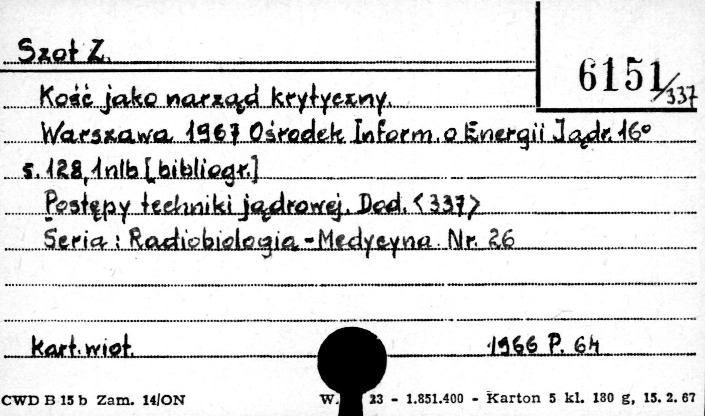 Szot Z.
6151/337
Kość jako narząd krytyczny.
Warszawa 1967 Ośrodek Inform. o Energii Jądr. 16°
s. 128, 1nlb [bibliogr.]
Postępy techniki jądrowej. Dod. <337>
Seria: Radiobiologia - Medycyna Nr. 26
kart. wiot. 1966 P. 64
CWD B 15 b Zam. 14/ON W. 23 - 1.851.400 - Karton 5 kl. 180 g, 15. 2. 67